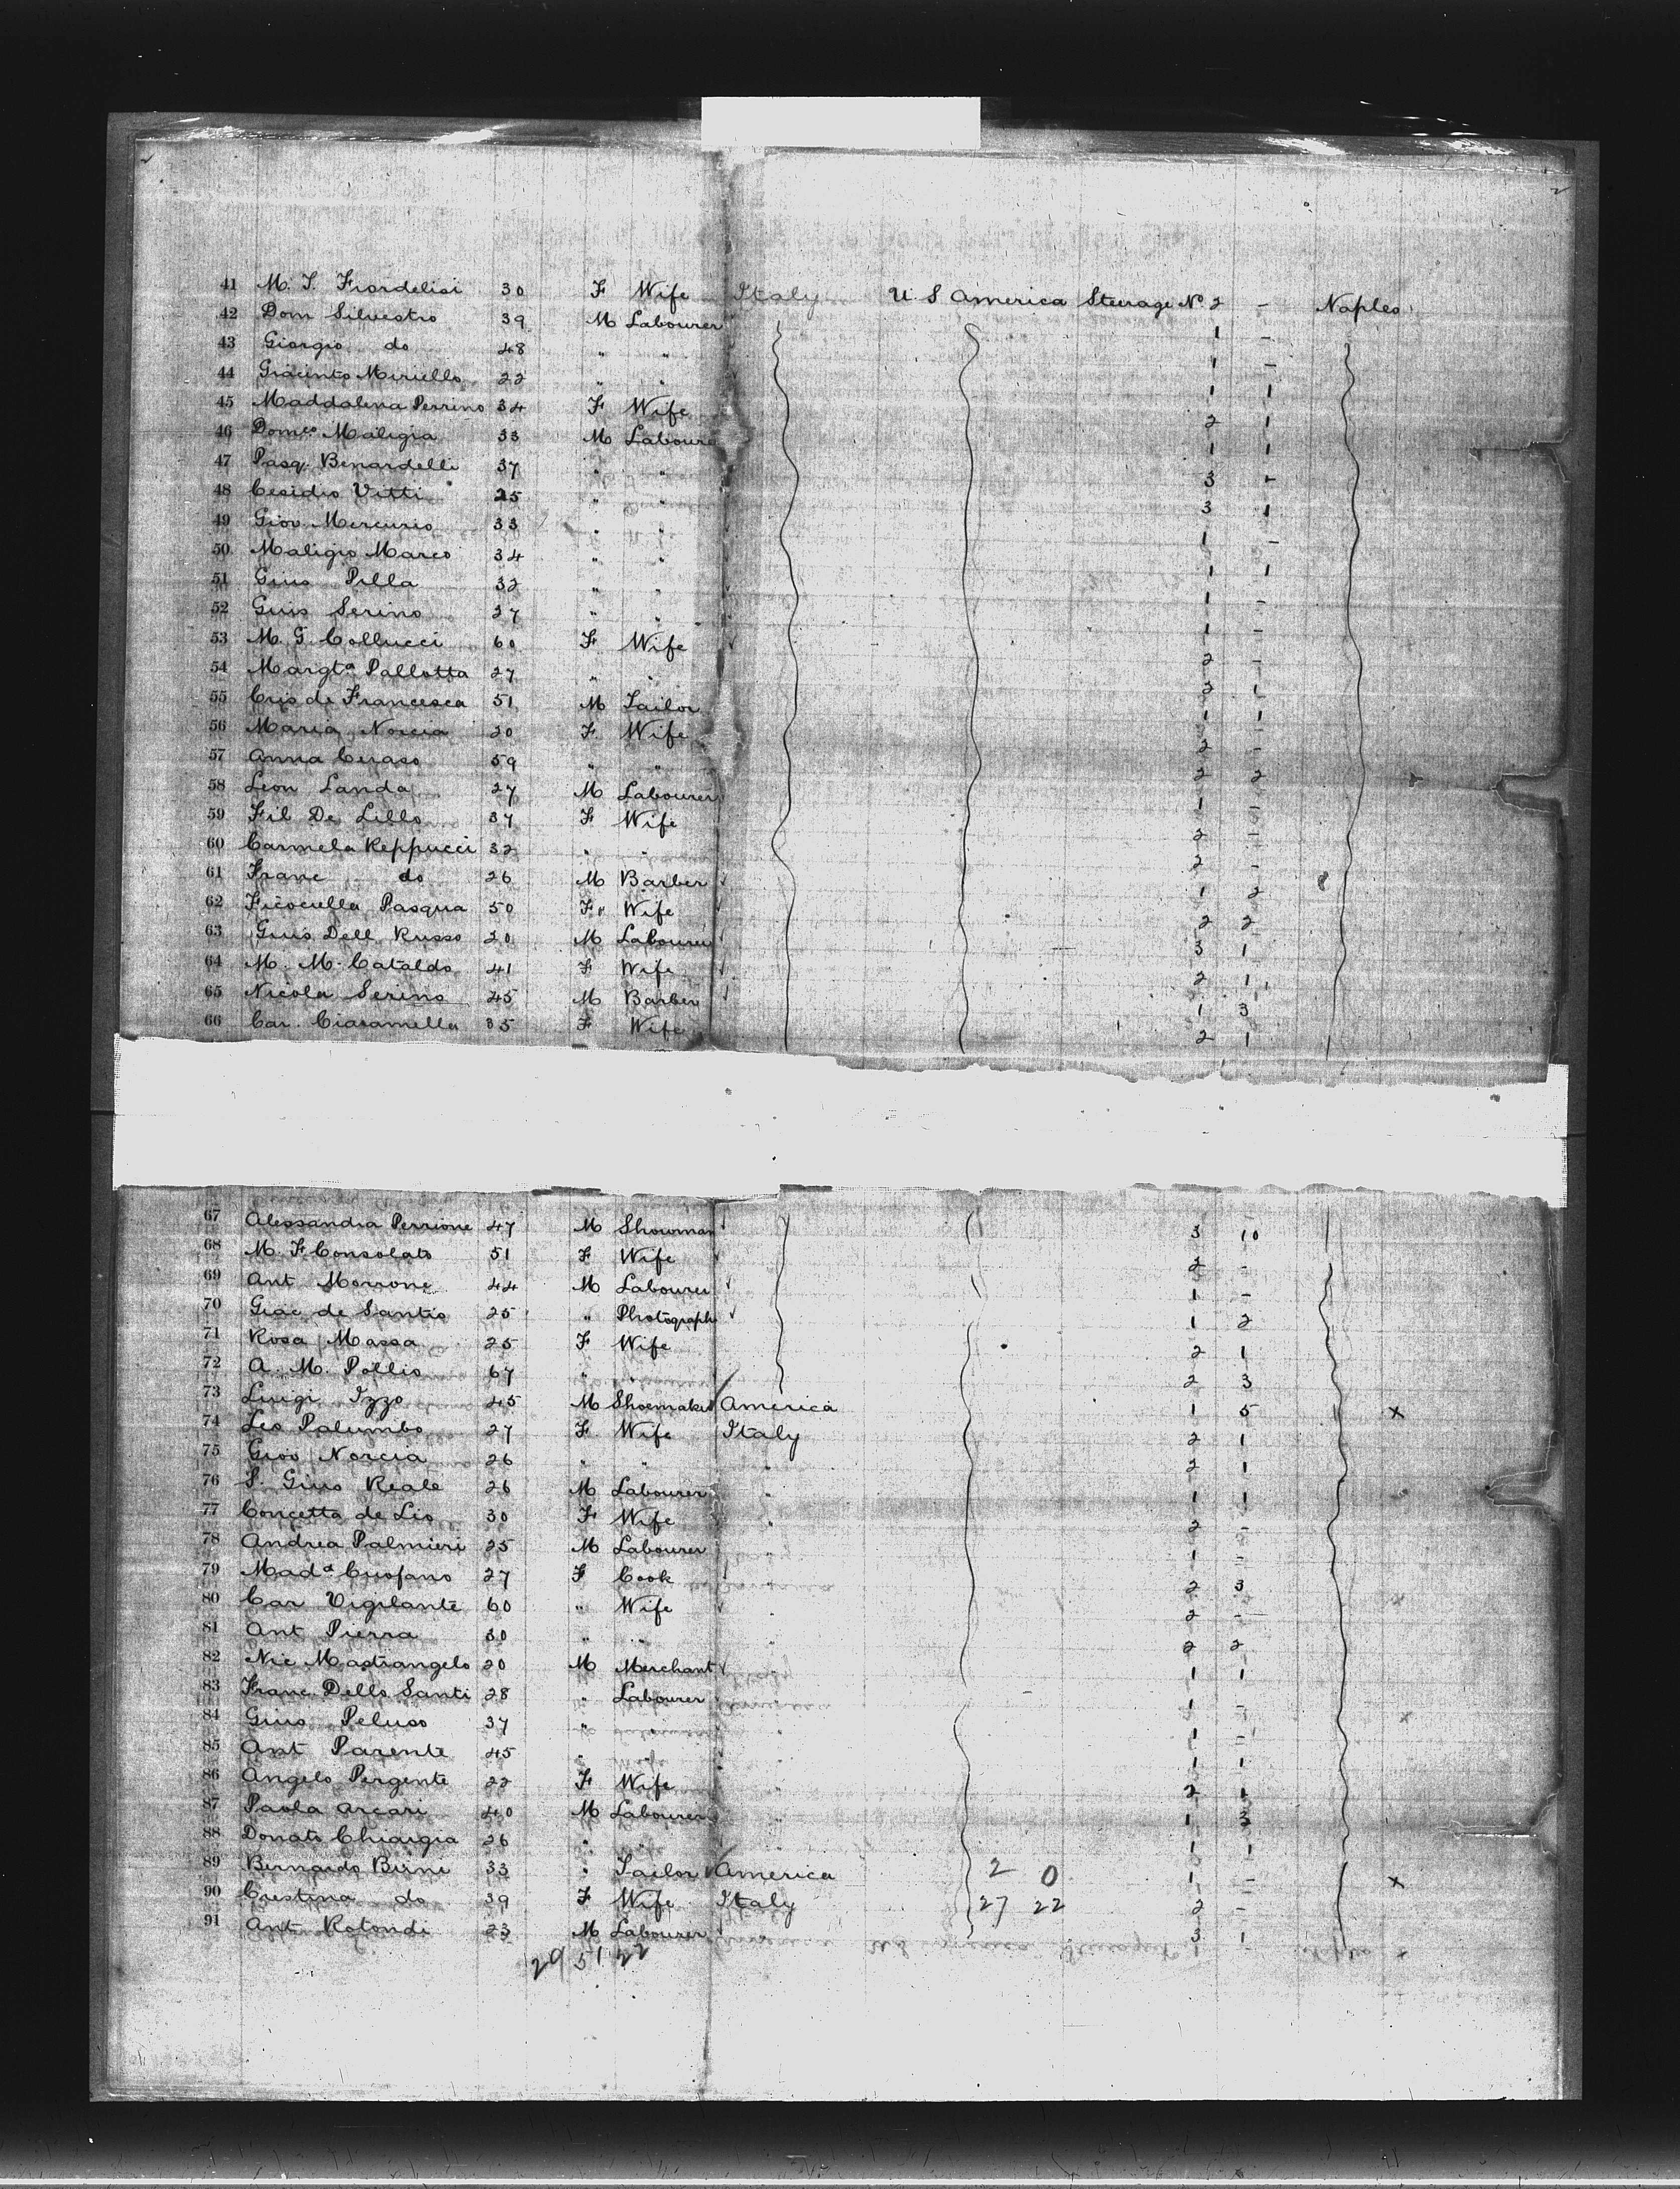 41 M. T. Fiordelisi 30 F Wife Italy U S America Steerage No 2 - Naples
42 Dom Silvestro 39 M Labourer 1 -
43 Giorgio do 48 " " 1 -
44 Giacinto Meriello 22 " " 1 1
45 Maddalena Perrino 34 F Wife 2 1
46 Domco Maligia 33 M Laboure 1 1
47 Pasq. Benardelli 37 " " 3 -
48 Cesidio Vitti 25 " " 3 1
49 Giov Mercurio 33 " " 1 -
50 Maligio Marco 34 " " 1 1
51 Gius Pilla 32 " " 1 -
52 Guis Serino 27 " " 1 -
53 M. G. Collucci 60 F Wife 2 -
54 Margta Pallotta 27 " " 2 1
55 Cris de Francesca 51 M Tailor 1 1
56 Maria Norcia 20 F Wife 2 -
57 Anna Ceraso 59 " " 2 2
58 Leon Landa 27 M Labourer 1 -
59 Fil De Lillo 37 F Wife 2 -
60 Carmela Reppucci 32 " " 2 -
61 Franc do 26 M Barber 1 2
62 Ficociella Pasqua 50 F Wife 2 2
63 Gius Dell Russo 20 M Labourer 3 1
64 M. M. Cataldo 41 F Wife 2 1
65 Nicola Serino 45 M Barber 1 3
66 Car. Ciaramella 35 F Wife 2 1
67 Alessandra Perrione 47 M Showman 3 10
68 M. F Consolato 51 F Wife 2 -
69 Ant Morrone 44 M Labourer 1 -
70 Giac de Santis 25 " Photograph 1 2
71 Rosa Massa 25 F Wife 2 1
72 A. M. Pollio 67 " " 2 3
73 Luigi Izzo 45 M Shoemaker America 1 5 x
74 Leo Palumbo 27 F Wife Italy 2 1
75 Giov Norcia 26 " " " 2 1
76 S. Gius Reale 26 M Labourer " 1 1
77 Concetta de Lio 30 F Wife " 2 -
78 Andrea Palmieri 25 M Labourer " 1 -
79 Mada Cuofano 27 F Cook 2 3
80 Car Vigilante 60 " Wife " 2 -
81 Ant Pierra 30 " " " 2 2
82 Nic Mastrangelo 20 M Merchant 1 1
83 Franc. Dello Santi 28 " Labourer 1 -
84 Gius Peluso 37 " " " 1 -
85 Ant Parente 45 " " " 1 1
86 Angelo Pergente 22 F Wife " 2 1
87 Paola Arcari 40 M Labourer " 1 3
88 Donato Chiargia 26 " " " 1 1
89 Bernardo Birni 33 " Tailor America 2 0 1 - x
90 Crestina do 39 F Wife Italy 27 22 2 -
91 Ant Rotondi 23 M Labourer 3 1
29 51 22